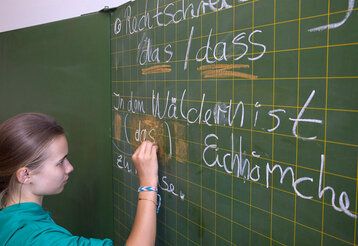 Rechtschrei
das / dass
In dem Wäldern ist,
(das) Eichhörnche
zu
se.